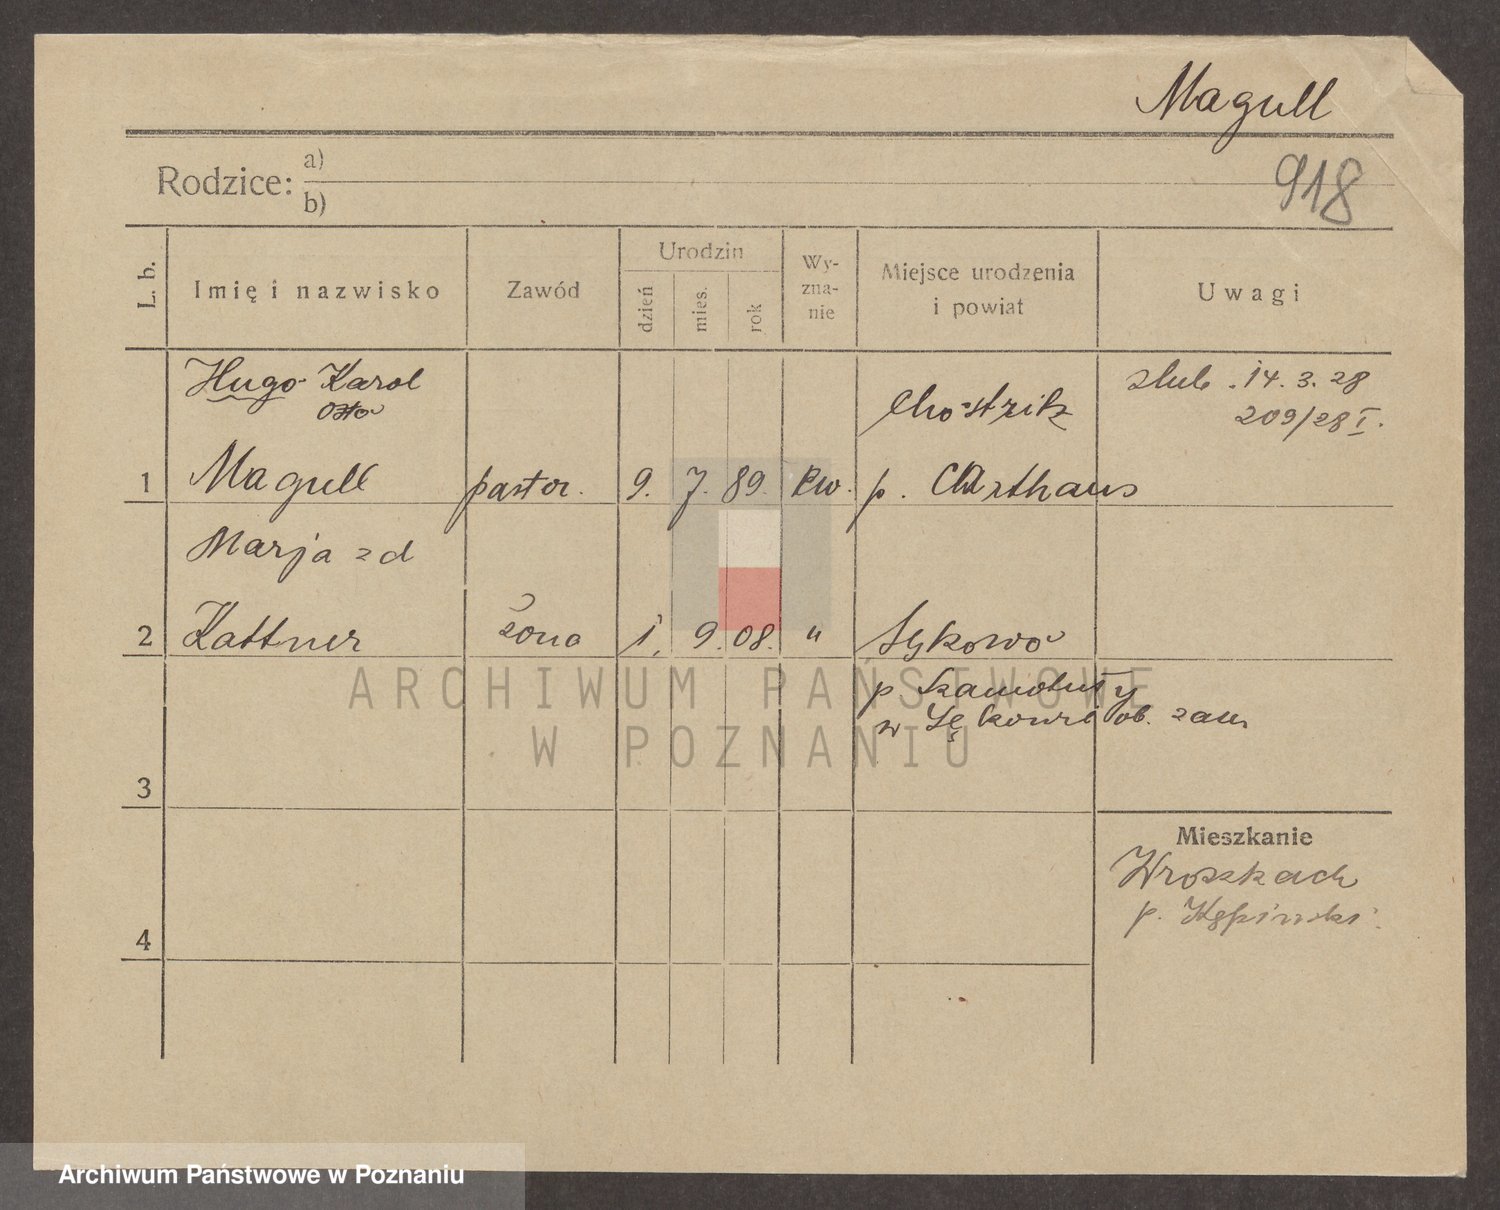 Magull
918
Rodzice: a)
b)
L. b.
Imię i nazwisko
Zawód
Urodzin
dzień
mies.
rok
Wy-
zna-
nie
Miejsce urodzenia
i powiat
Uwagi
Hugo Karol
Otto
Chostrik
ślub. 14. 3. 28
209/28 I.
1 Magull pastor. 9. 7. 89. ew. p. Carthaus
Marja z d
2 Kattner żona 1. 9. 08. " Sękowo
p Szamotuły
w Sękowie ob. zam
3
Mieszkanie
Wroszkach
p. Kępiński
4
ARCHIWUM PAŃSTWOWE
W POZNANIU
Archiwum Państwowe w Poznaniu